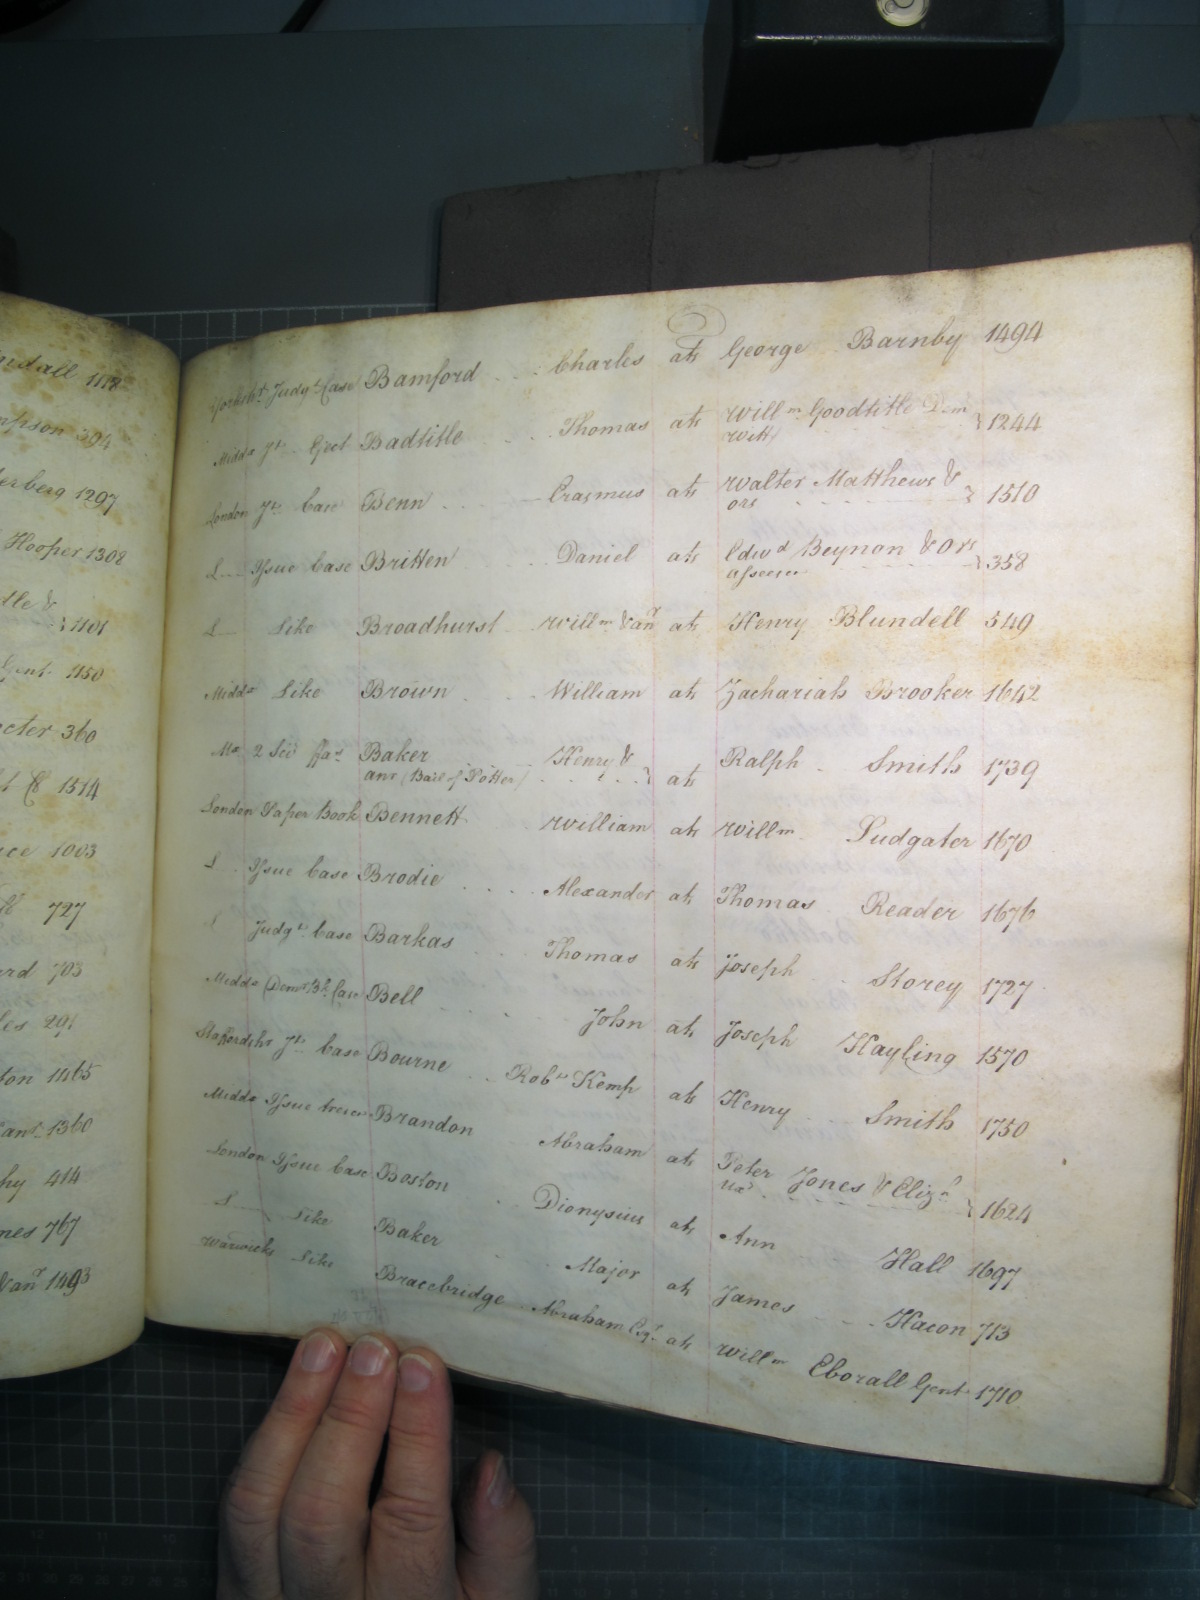 1118
394
1297
Hooper 1308
1101
Gent. 1150
360
1514
1003
727
703
291
1465
1360
414
767
1493
Yorksh. Judgt. Case Bamford Charles ats George Barnby 1494
Middx Jt. Ejet Badtitle Thomas ats Willm Goodtitle Dem
Witt 1244
London Jt. Case Benn Erasmus ats Walter Matthews &
ors 1510
L Issue Case Britten Daniel ats Edwd Beynon & Ors
assees 358
L Like Broadhurst Willm & anr ats Henry Blundell 549
Middx Like Brown William ats Zachariah Brooker 1642
Mx 2 Sci fas Baker Henry & ats Ralph Smith 1739
anr (Bail of Potter)
London Paper Book Bennett William ats Willm Ludgater 1670
L Issue Case Brodie Alexander ats Thomas Reader 1676
L Judgt. Case Barkas Thomas ats Joseph Storey 1727
Middx Case Bell John ats Joseph Hayling 1570
Staffordshe Jt. Case Bourne Robt. Kemp ats Henry Smith 1750
Middx Issue Brandon Abraham ats Peter Jones & Elizh
Ux 1624
London Issue Case Boston Dionysius ats Ann Hall 1697
L Like Baker Major ats James Hacon 713
Warwicks Like Bracebridge Abraham Esqr. ats Willm Eborall Gent 1710